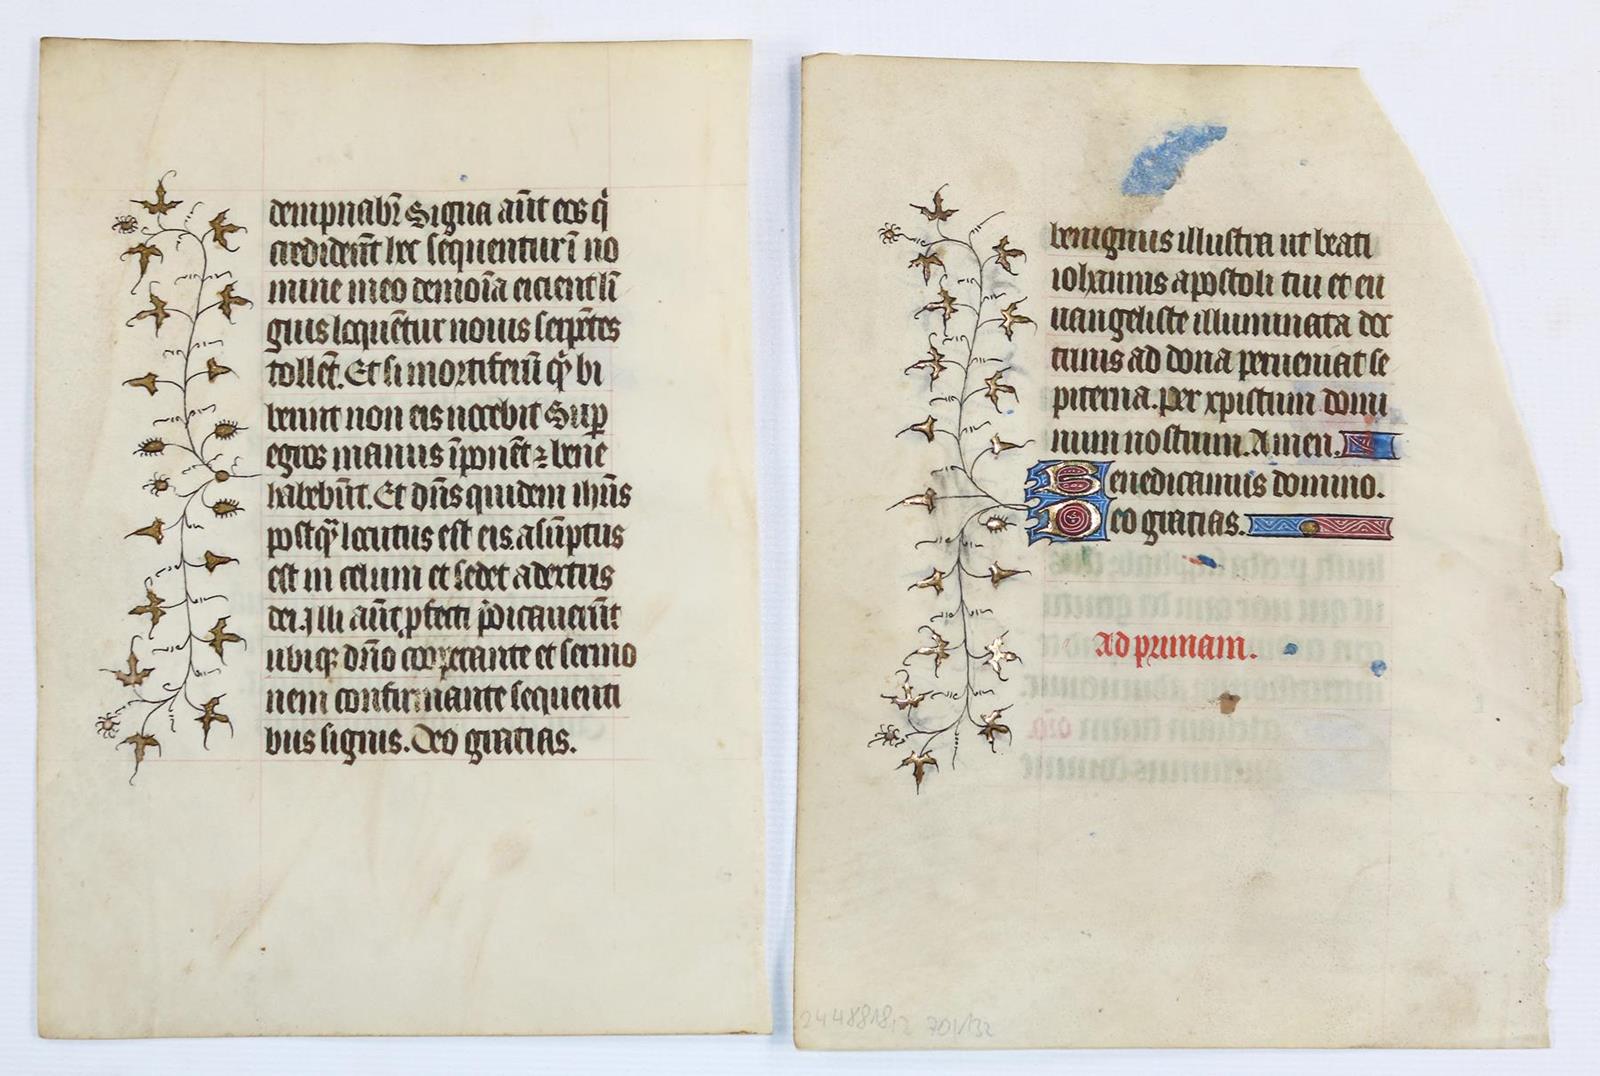 dempnabr̄ Signa aūt eos q̇
credider̄t hec sequentur ī no
mine meo demoīa eicient lī
guis loquētur nouis serpētes
tollēt. Et si mortiferū q̇ bi
berint non eis nocebit Sup̄
egros manus īponēt ⁊ bene
habebūt. Et dn̄s quidem ihūs
postq̄ locutus est eis. asūptus
est in celum et sedet a dextris
dei. Illi aūt p̄fecti p̄dicauer̄t
ubiq; dn̄o cooperante et sermo
nem confirmante sequenti
bus signis. Deo gratias.
benignus illustra ut beati
iohannis apostoli tui et eu
uangeliste illuminata doc
trinis ad dona perueniat se
piterna. Per xpistum domi
num nostrum. Amen.
Benedicamus domino.
Deo gratias.
Ad primam.
2448818,2 701/132